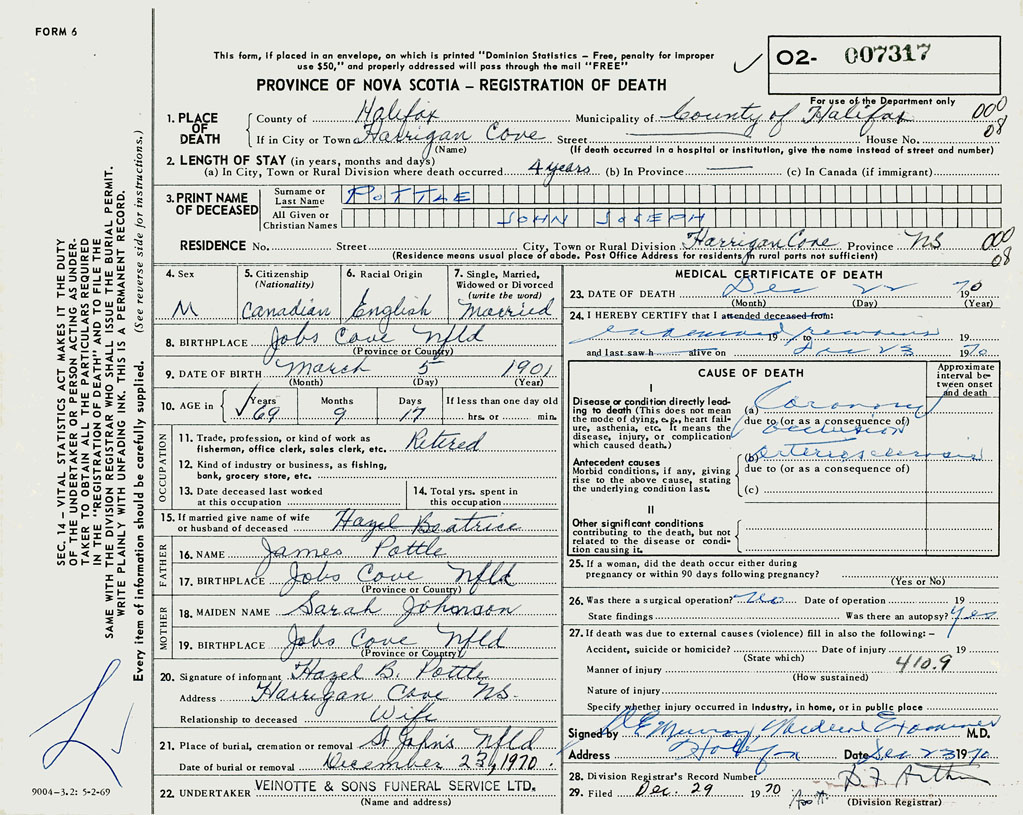 FORM 6
This form, if placed in an envelope, on which is printed "Dominion Statistics – Free, penalty for improper
use $50," and properly addressed will pass through the mail "FREE"
02- 007317
For use of the Department only
PROVINCE OF NOVA SCOTIA – REGISTRATION OF DEATH
1. PLACE OF DEATH
County of Halifax Municipality of County of Halifax 000
If in City or Town Harrigan Cove Street House No. 08
(Name) (If death occurred in a hospital or institution, give the name instead of street and number)
2. LENGTH OF STAY (in years, months and days)
(a) In City, Town or Rural Division where death occurred 4 years (b) In Province — (c) In Canada (if immigrant)
3. PRINT NAME OF DECEASED
Surname or Last Name POTTLE
All Given or Christian Names JOHN JOSEPH
RESIDENCE No. Street City, Town or Rural Division Harrigan Cove Province NS 000
(Residence means usual place of abode. Post Office Address for residents in rural parts not sufficient) 08
4. Sex M
5. Citizenship (Nationality) Canadian
6. Racial Origin English
7. Single, Married, Widowed or Divorced (write the word) Married
8. BIRTHPLACE Jobs Cove Nfld
(Province or Country)
9. DATE OF BIRTH March 5 1901
(Month) (Day) (Year)
10. AGE in Years 69 Months 9 Days 17 If less than one day old
hrs. or min.
OCCUPATION
11. Trade, profession, or kind of work as fisherman, office clerk, sales clerk, etc. Retired
12. Kind of industry or business, as fishing, bank, grocery store, etc.
13. Date deceased last worked at this occupation
14. Total yrs. spent in this occupation
15. If married give name of wife or husband of deceased Hazel Beatrice
FATHER
16. NAME James Pottle
17. BIRTHPLACE Jobs Cove Nfld
(Province or Country)
MOTHER
18. MAIDEN NAME Sarah Johnson
19. BIRTHPLACE Jobs Cove Nfld
(Province or Country)
20. Signature of informant Hazel B. Pottle
Address Harrigan Cove NS.
Relationship to deceased Wife
21. Place of burial, cremation or removal St John's Nfld
Date of burial or removal December 23, 1970.
22. UNDERTAKER VEINOTTE & SONS FUNERAL SERVICE LTD.
(Name and address)
MEDICAL CERTIFICATE OF DEATH
23. DATE OF DEATH Dec 22 1970
(Month) (Day) (Year)
24. I HEREBY CERTIFY that I attended deceased from:
19 to
and last saw h alive on Dec 23 1970
CAUSE OF DEATH
Approximate interval between onset and death
I
Disease or condition directly leading to death (This does not mean the mode of dying, e.g., heart failure, asthenia, etc. It means the disease, injury, or complication which caused death.)
(a) Coronary
due to (or as a consequence of)
occlusion
Antecedent causes
Morbid conditions, if any, giving rise to the above cause, stating the underlying condition last.
(b) arteriosclerosis
due to (or as a consequence of)
(c)
II
Other significant conditions contributing to the death, but not related to the disease or condition causing it.
25. If a woman, did the death occur either during pregnancy or within 90 days following pregnancy?
(Yes or No)
26. Was there a surgical operation? No Date of operation 19
State findings Was there an autopsy? Yes
27. If death was due to external causes (violence) fill in also the following: –
Accident, suicide or homicide? Date of injury 19
(State which) 410.9
Manner of injury
(How sustained)
Nature of injury
Specify whether injury occurred in industry, in home, or in public place
Signed by Murray Medical Examiner M.D.
Address Halifax Date Dec 23 1970
28. Division Registrar's Record Number
29. Filed Dec. 29 1970
(Division Registrar)
SEC. 14 – VITAL STATISTICS ACT MAKES IT THE DUTY
OF THE UNDERTAKER OR PERSON ACTING AS UNDER-
TAKER TO OBTAIN ALL THE PARTICULARS REQUIRED
IN THE "REGISTRATION OF DEATH" AND TO FILE THE
SAME WITH THE DIVISION REGISTRAR WHO SHALL ISSUE THE BURIAL PERMIT.
WRITE PLAINLY WITH UNFADING INK. THIS IS A PERMANENT RECORD.
Every item of information should be carefully supplied. (See reverse side for instructions.)
9004-3.2: 5-2-69